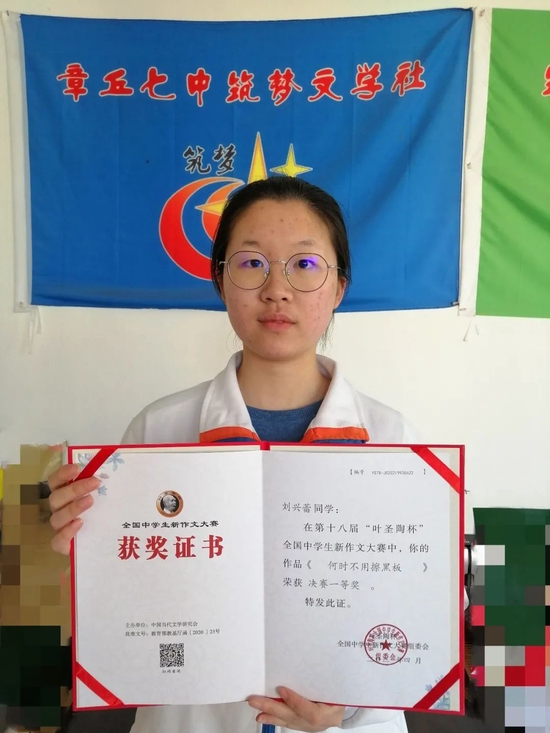 章丘七中筑梦文学社
筑梦
全国中学生新作文大赛
获奖证书
主办单位：中国当代文学研究会
批准文号：教育部教基厅函〔2020〕23号
刘兴蕾同学：
在第十八届“叶圣陶杯”
全国中学生新作文大赛中，你的
作品《 何时不用擦黑板 》
荣获 决赛一等奖 。
特发此证。